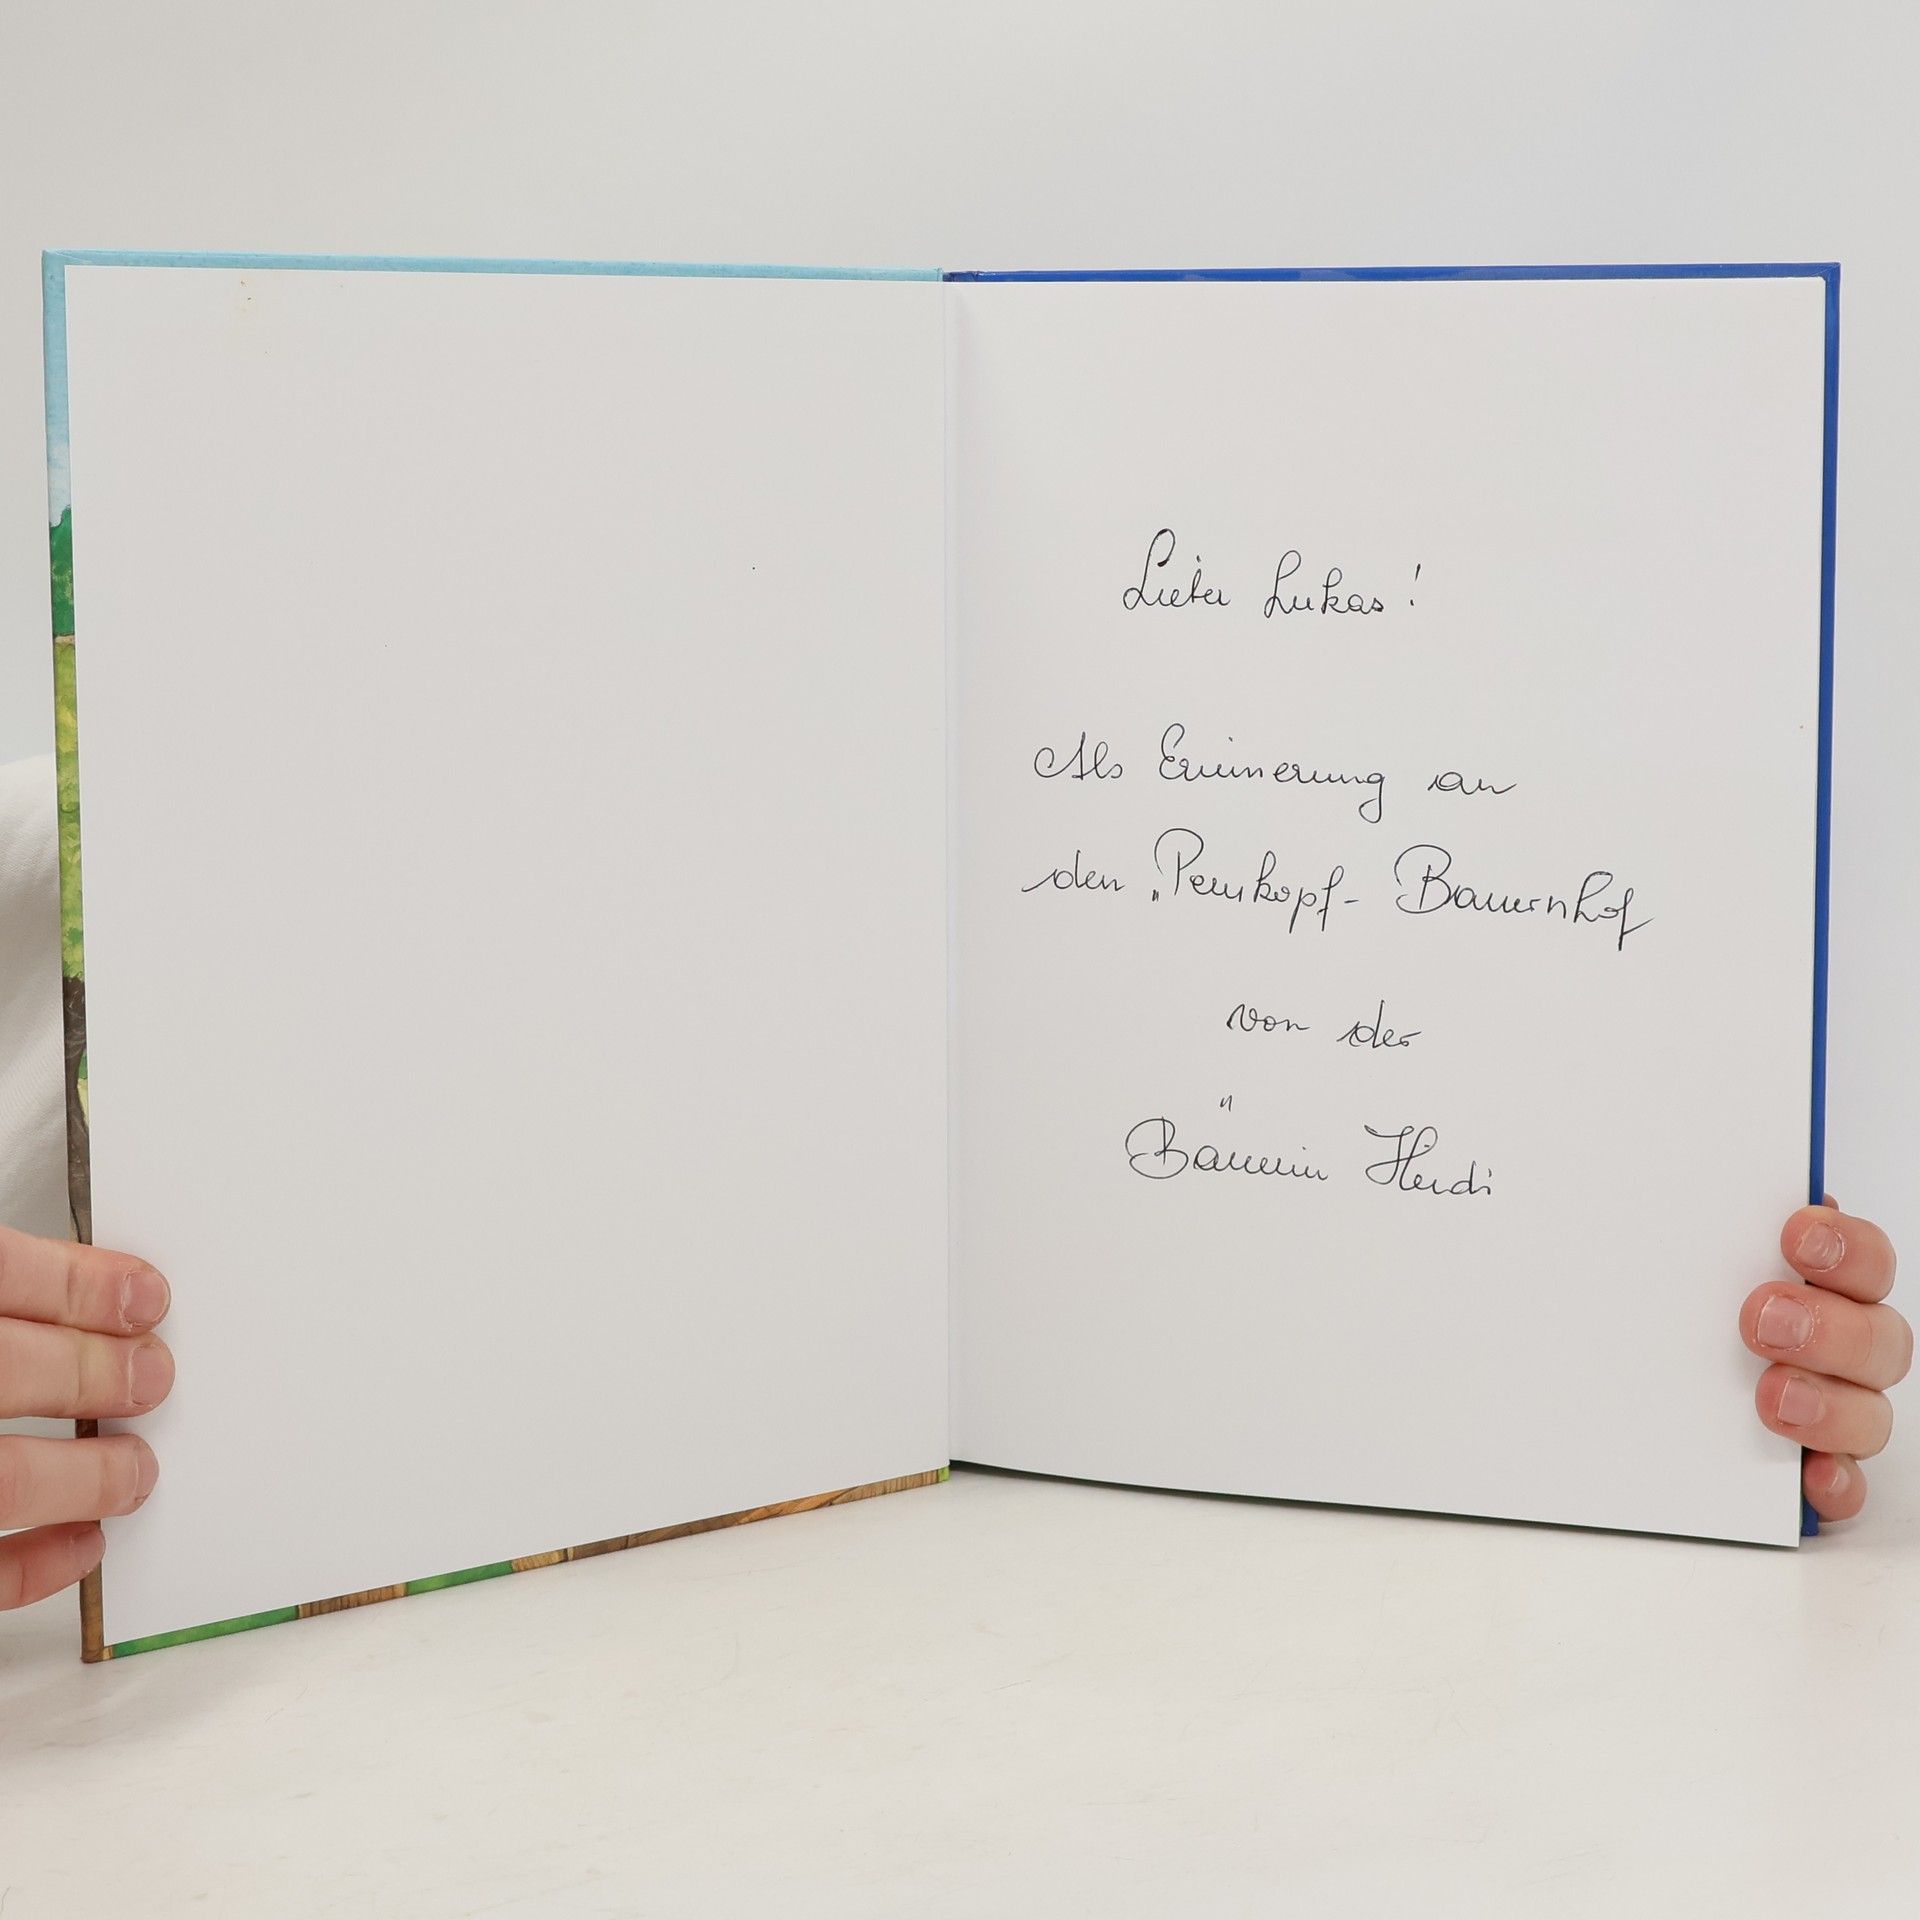 Lieber Lukas!
Als Erinnerung an
den „Pernkopf- Bauernhof
von der
" Bäuerin Heidi